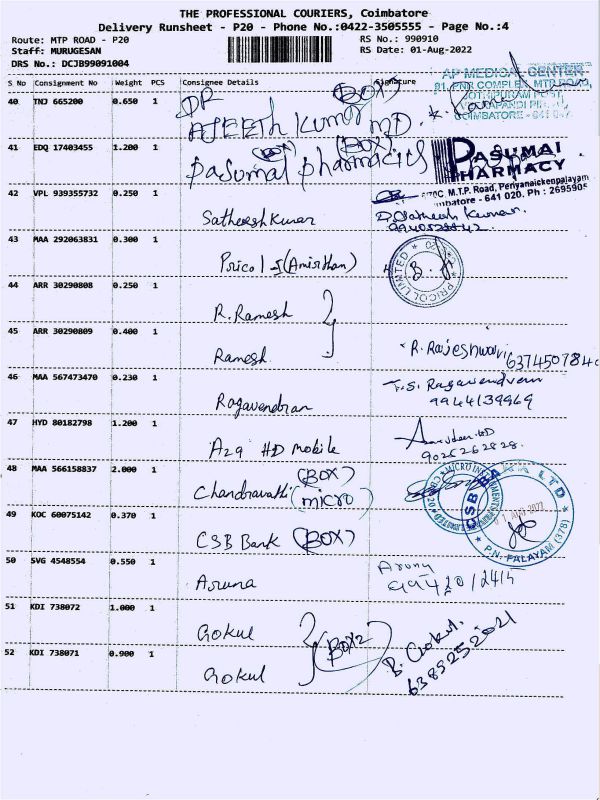 THE PROFESSIONAL COURIERS, Coimbatore
Delivery Runsheet - P20 - Phone No.:0422-3505555 - Page No.:4
Route: MTP ROAD - P20 RS No.: 990910
Staff: MURUGESAN RS Date: 01-Aug-2022
DRS No.: DCJB99091004
S No Consignment No Weight PCS Consignee Details Signature
AP MEDICAL CENTER
COIMBATORE - 641
40 TNJ 665200 0.650 1 DR (BOX)
AJEETH KUMAR MD.
41 EDQ 17403455 1.200 1 (BOX) (BOX) PASUMAI
Pasumai pharmacits PHARMACY
M.T.P. Road, Periyanaickenpalayam
641 020. Ph : 2695905
42 VPL 939355732 0.250 1
Satheesh Kumar Kumar.
43 MAA 292063831 0.300 1
Pricol-5 (Amirthan) PRICOL LIMITED
44 ARR 30290808 0.250 1
R. Ramesh
45 ARR 30290809 0.400 1
Ramesh R. Rajeshwari
46 MAA 567473470 0.230 1 T.S. Ragavendran
Ragavendran 9944139969
47 HYD 80182798 1.200 1
A2q HD mobile 9026262828
48 MAA 566158837 2.000 1 (BOX)
Chandravathi (micro)
49 KOC 60075142 0.370 1
CSB Bank (BOX) P.N. PALAYAM (378)
50 SVG 4548554 0.550 1
Aruna
51 KDI 738072 1.000 1
Gokul (BOX2) B. Gokul.
52 KDI 738071 0.900 1 6385252021
Gokul